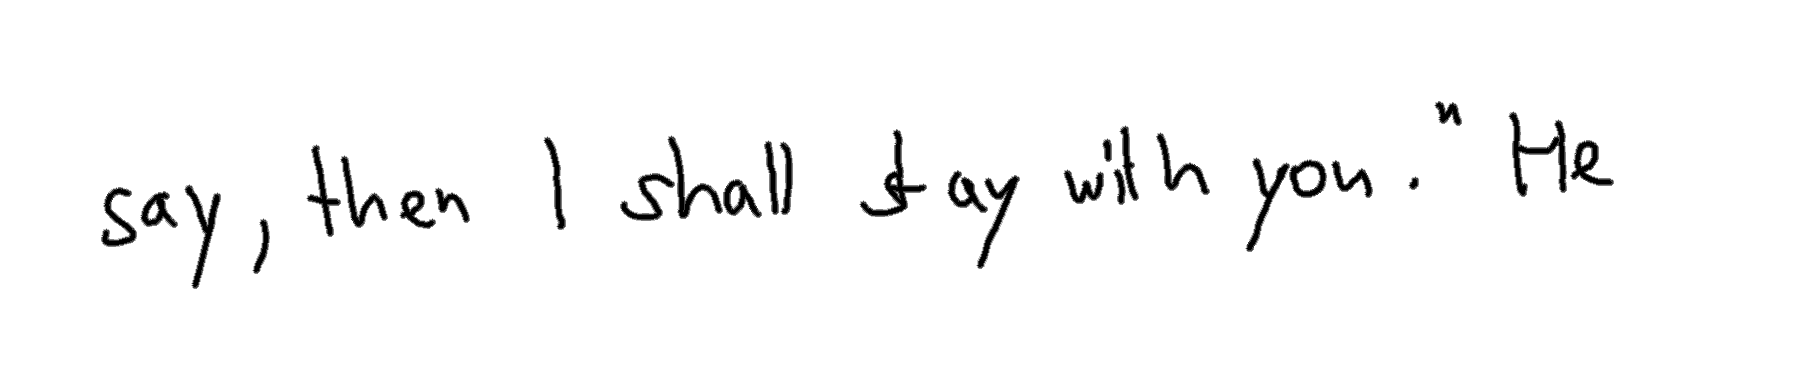 say, then I shall stay with you." He